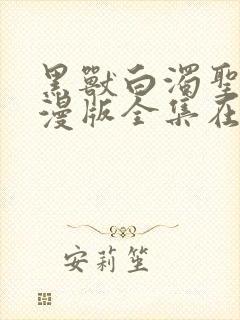 黑獸白濁聖
漫版全集在
安莉笙